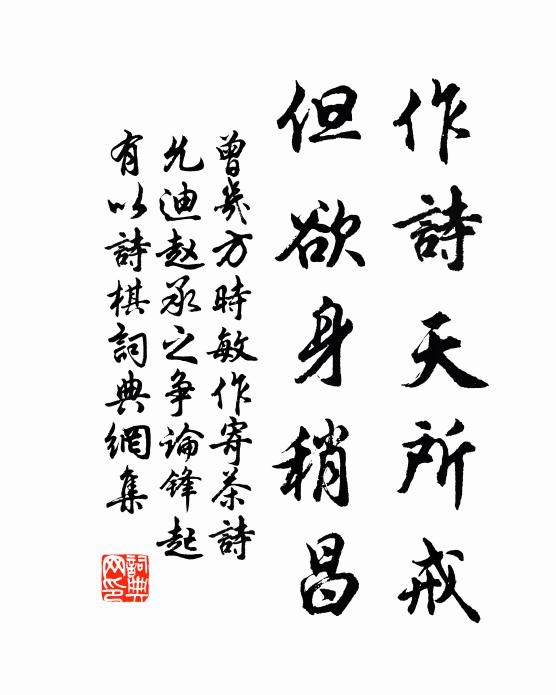 作詩天所戒
但欲身稍昌
曾幾方時敏作寄茶詩
允迪赵承之争論鋒起
有以詩棋詞典網集
詞典网印